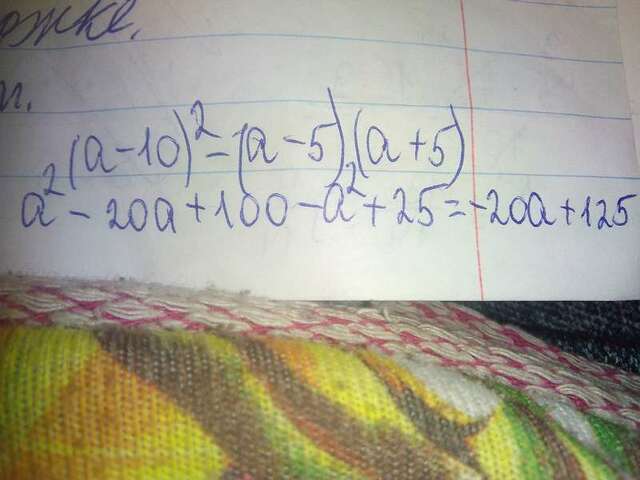 (a-10)² - (a-5)(a+5)
a² - 20a + 100 - a² + 25 = -20a + 125